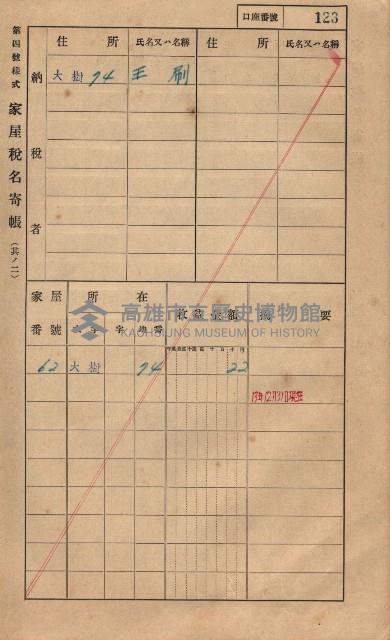 口座番號 123
第四號樣式 家屋稅名寄帳 (其ノ二)
納稅者
住所 氏名又ハ名稱 住所 氏名又ハ名稱
大樹 74 王 刷
家屋番號 所在 收益金額 摘要
高雄市立歷史博物館
KAOHSIUNG MUSEUM OF HISTORY
62 大樹 74 22